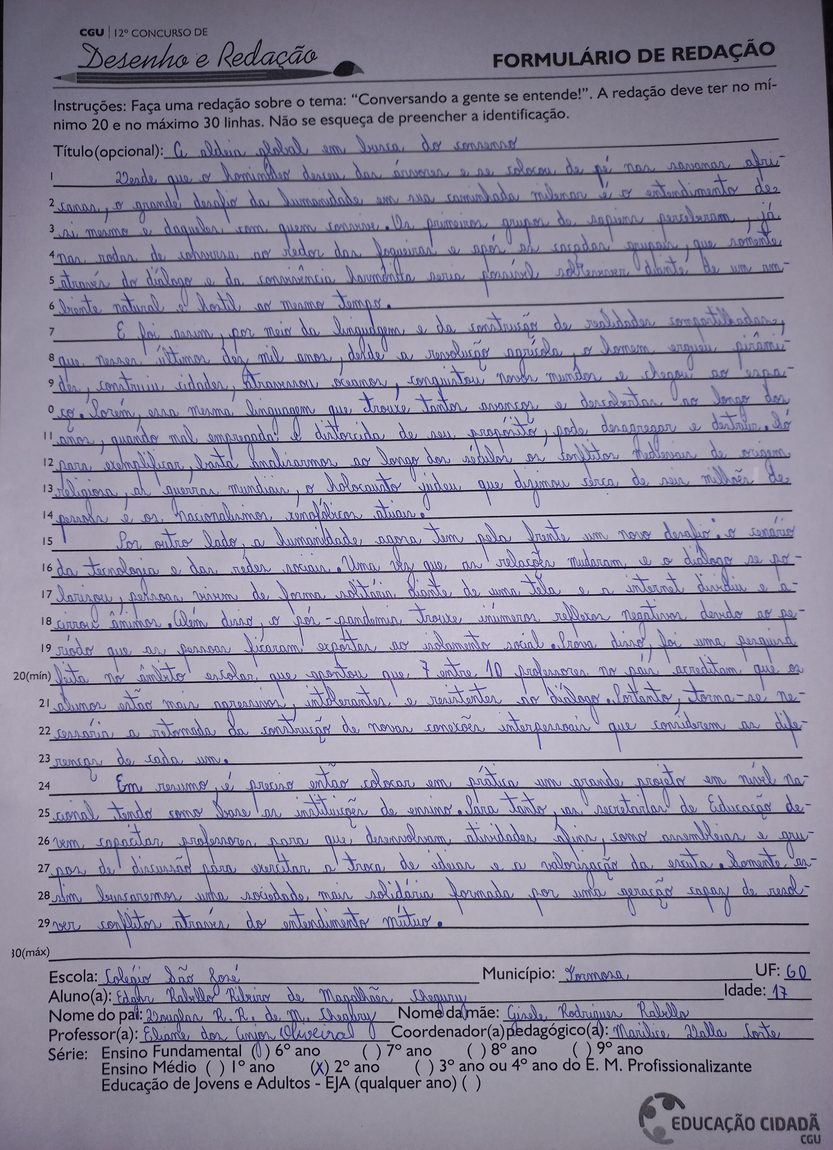 CGU | 12º CONCURSO DE
Desenho e Redação
FORMULÁRIO DE REDAÇÃO
Instruções: Faça uma redação sobre o tema: “Conversando a gente se entende!”. A redação deve ter no mí-
nimo 20 e no máximo 30 linhas. Não se esqueça de preencher a identificação.
Título(opcional): A aldeia global em busca do consenso
1 Desde que o hominídeo desceu das árvores e se colocou de pé nas savanas afri-
2 canas, o grande desafio da humanidade em sua caminhada milenar é o entendimento de
3 si mesmo e daqueles com quem convive. Os primeiros grupos de sapiens perceberam, já
4 nas rodas de conversa ao redor das fogueiras e após as caçadas grupais, que somente
5 através do diálogo e da convivência harmônica seria possível sobreviver diante de um am-
6 biente natural e hostil ao mesmo tempo.
7 E foi assim, por meio da linguagem e da construção de realidades compartilhadas,
8 que nesses últimos dez mil anos, desde a revolução agrícola, o homem ergueu pirâmi-
9 des, construiu cidades, atravessou oceanos, conquistou novos mundos e chegou ao espa-
0 ço. Porém, essa mesma linguagem que trouxe tantos avanços e descobertas ao longo dos
11 anos, quando mal empregada e distorcida de seu propósito, pode desagregar e destruir. Só
12 para exemplificar, basta analisarmos ao longo dos séculos os conflitos medievais de origem
13 religiosa, as guerras mundiais, o holocausto judeu que dizimou cerca de seis milhões de
14 pessoas e os nacionalismos xenofóbicos atuais.
15 Por outro lado, a humanidade agora tem pela frente um novo desafio: o cenário
16 da tecnologia e das redes sociais. Uma vez que as relações mudaram e o diálogo se po-
17 larizou, pessoas vivem de forma solitária diante de uma tela e a internet dividiu e a-
18 cirrou ânimos. Além disso, o pós-pandemia trouxe inúmeros reflexos negativos devido ao pe-
19 ríodo que as pessoas ficaram expostas ao isolamento social. Prova disso, foi uma pesquisa
20(mín) feita no âmbito escolar que apontou que 7 entre 10 professores no país acreditam que os
21 alunos estão mais agressivos, intolerantes e resistentes ao diálogo. Portanto, torna-se ne-
22 cessária a retomada da construção de novas conexões interpessoais que considerem as dife-
23 renças de cada um.
24 Em resumo, é preciso então colocar em prática um grande projeto em nível na-
25 cional tendo como base as instituições de ensino. Para tanto, as secretarias de Educação de-
26 vem capacitar professores para que desenvolvam atividades afins, como assembleias e gru-
27 pos de discussão para exercitar a troca de ideias e a valorização da escuta. Somente as-
28 sim buscaremos uma sociedade mais solidária formada por uma geração capaz de resol-
29 ver conflitos através do entendimento mútuo.
30(máx)
Escola: Colégio São José Município: Formosa UF: GO
Aluno(a): Edgar Rabello Ribeiro de Magalhães Idade: 17
Nome do pai: Douglas R. R. de M. Nome da mãe: Gisele Rodrigues Rabello
Professor(a): Eliane dos Anjos Oliveira Coordenador(a)pedagógico(a): Marilice Dalla Corte
Série: Ensino Fundamental ( ) 6º ano ( ) 7º ano ( ) 8º ano ( ) 9º ano
Ensino Médio ( ) 1º ano (X) 2º ano ( ) 3º ano ou 4º ano do E. M. Profissionalizante
Educação de Jovens e Adultos - EJA (qualquer ano) ( )
EDUCAÇÃO CIDADÃ
CGU